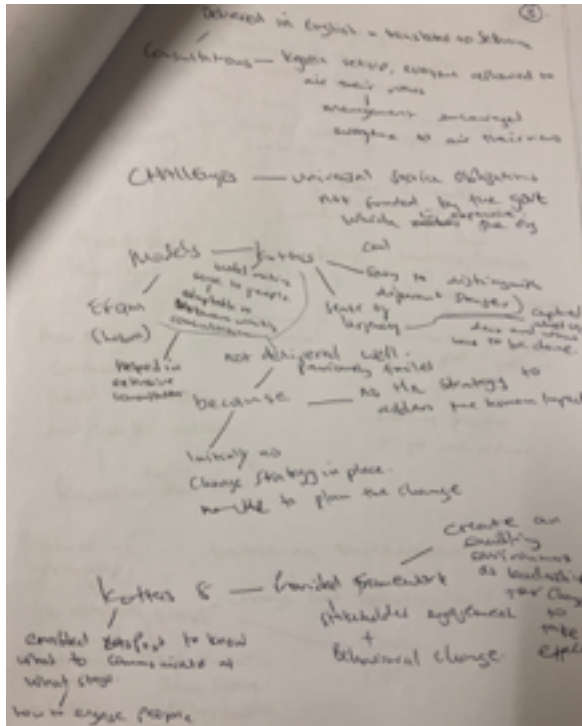 3.
Delivered in English + translated to
Consultations — kgotla setup, everyone allowed to
air their views
management encouraged
everyone to air their views
CHALLENGES — universal service obligations
not funded by the govt
which is expensive the org
Models — Kotters
model
to people
adaptable to
EFQM
helped in
extensive
consultation
Easy to distinguish
different stages)
sense of
urgency
captured
what
done and
to be done
not delivered well.
previously failed
because — no HR strategy to
address the human impact
Initially no
change strategy in place.
to plan the change
Kotters 8 — Provided framework
create an
enabling
environment
as
for change
to
take
effect
stakeholder engagement
+
Behavioral change
enabled BotsPost to know
what to communicate at
what stage
how to engage people